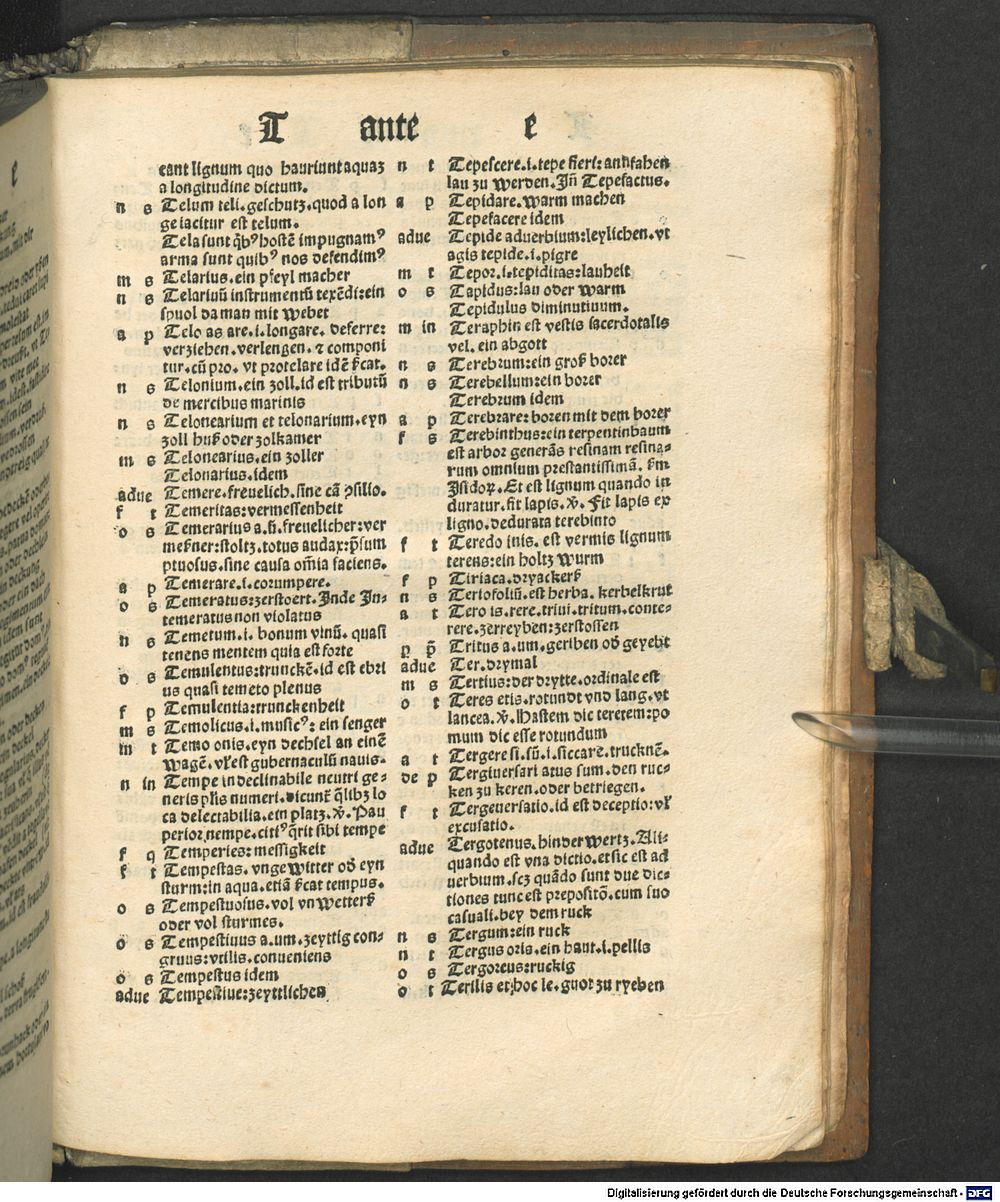 T ante e
cant lignum quo hauriunt aquaꝫ
a longitudine dictum.
n s Telum teli.geschutz.quod a lon
ge iacitur est telum.
Tela sunt q̄bꝰ hostē impugnamꝰ
arma sunt quibꝰ nos defendimꝰ
m s Telarius.ein pfeyl macher
n s Telariuū instrumentū texēdi:ein
spuol da man mit webet
a p Telo as are.i.longare. deferre:
verziehen.verlengen.⁊ componi
tur.cū pro. vt protelare idē ſcat.
n s Telonium.ein zoll.id est tributū
de mercibus marinis
n s Telonearium et telonarium.eyn
zoll huß oder zolkamer
m s Telonearius.ein zoller
Telonarius.idem
adue Temere.freuelich.sine cā ꝯsilio.
f t Temeritas:vermessenheit
o s Temerarius a.ū.freuelicher:ver
meßner:stoltz.totus audax:p̄sum
ptuosus.sine causa om̄ia faciens.
a p Temerare.i.corumpere.
o s Temeratus:zerstoert.Inde In-
temeratus non violatus
n s Temetum.i. bonum vinū. quasi
tenens mentem quia est forte
o s Temulentus:trunckē.id est ebri
us quasi temeto plenus
f p Temulentia:trunckenheit
m s Temolicus.i.musicꝰ: ein senger
m t Temo onis.eyn dechsel an einē
wagē. vl̓ est gubernaculū nauis.
n in Tempe indeclinabile neutri ge-
neris pl̓is numeri.dicunt̄ q̄libꝫ lo
ca delectabilia.ein platz.v̄. Pau
perior nempe.citiꝰ q̄rit sibi tempe
f q Temperies:messigkeit
f t Tempestas.vngewitter od̓ eyn
sturm:in aqua.etiā ſcat tempus.
o s Tempestuosus.vol vnwetterß
oder vol sturmes.
o s Tempestiuus a.um.zeyttig con-
gruus:vtilis.conueniens
o s Tempestus idem
adue Tempestiue:zeyttlichen
n t Tepescere.i.tepe fieri: anfahen
lau zu werden.Iñ Tepefactus.
a p Tepidare.warm machen
Tepefacere idem
adue Tepide aduerbium:leylichen.vt
agis tepide.i.pigre
m t Tepor.i.tepiditas:lauheit
o s Tapidus:lau oder warm
Tepidulus diminutiuum.
m in Teraphin est vestis sacerdotalis
vel.ein abgott
n s Terebrum:ein groß borer
n s Terebellum:ein borer
Terebrum idem
a p Terebrare:boren mit dem borer
f s Terebinthus:ein terpentinbaum
est arbor generās resinam resina-
rum omnium prestantissimā. ẜm
Isidoꝝ. Et est lignum quando in
duratur.fit lapis.v̄. Fit lapis ex
ligno.dedurata terebinto
f t Teredo inis. est vermis lignum
terens:ein holtz wurm
f p Tiriaca.dryackerß
n s Teriofoliū.est herba. kerbelkrut
a t Tero is.rere.triui.tritum.conte-
rere.zerreyben:zerstossen
p p̄ Tritus a.um.geriben od̓ geyebt
adue Ter.drymal
m s Tertius:der drytte.ordinale est
o t Teres etis.rotundt vnd lang.vt
lancea.v̄. Hastem dic teretem:po
mum dic esse rotundum
a t Tergere si.sū.i.siccare.trucknē.
de p Tergiuersari atus sum.den ruc-
ken zu keren.oder betriegen.
f t Tergeuersatio.id est deceptio:vl̓
excusatio.
adue Tergotenus. hinderwertz.Ali-
quando est vna dictio.et sic est ad
uerbium.scꝫ quādo sunt due dic-
tiones tunc est prepositō.cum suo
casuali.bey dem ruck
n s Tergum:ein ruck
n t Tergus oris.ein haut.i.pellis
o s Tergoreus:ruckig
o t Terilis et:hoc le.guot zu ryeben
Digitalisierung gefördert durch die Deutsche Forschungsgemeinschaft - DFG